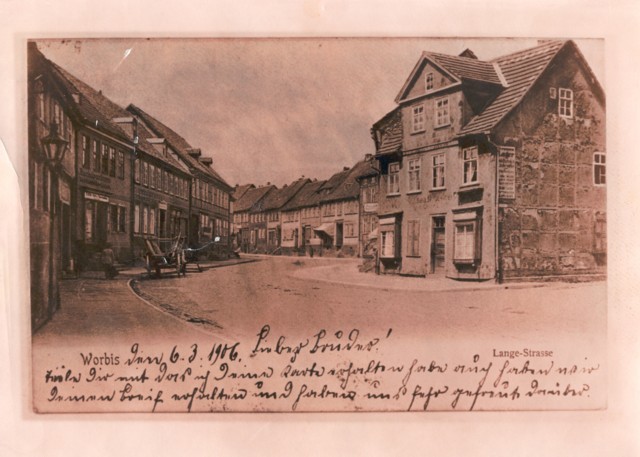 Worbis den 6.3.1906. Lieber Bruder!
Lange-Strasse
Teile Dir mit das ich Deine Karte erhalten habe auch haben wir
Deinen Breif erhalten und haben uns sehr gefreut darüber.